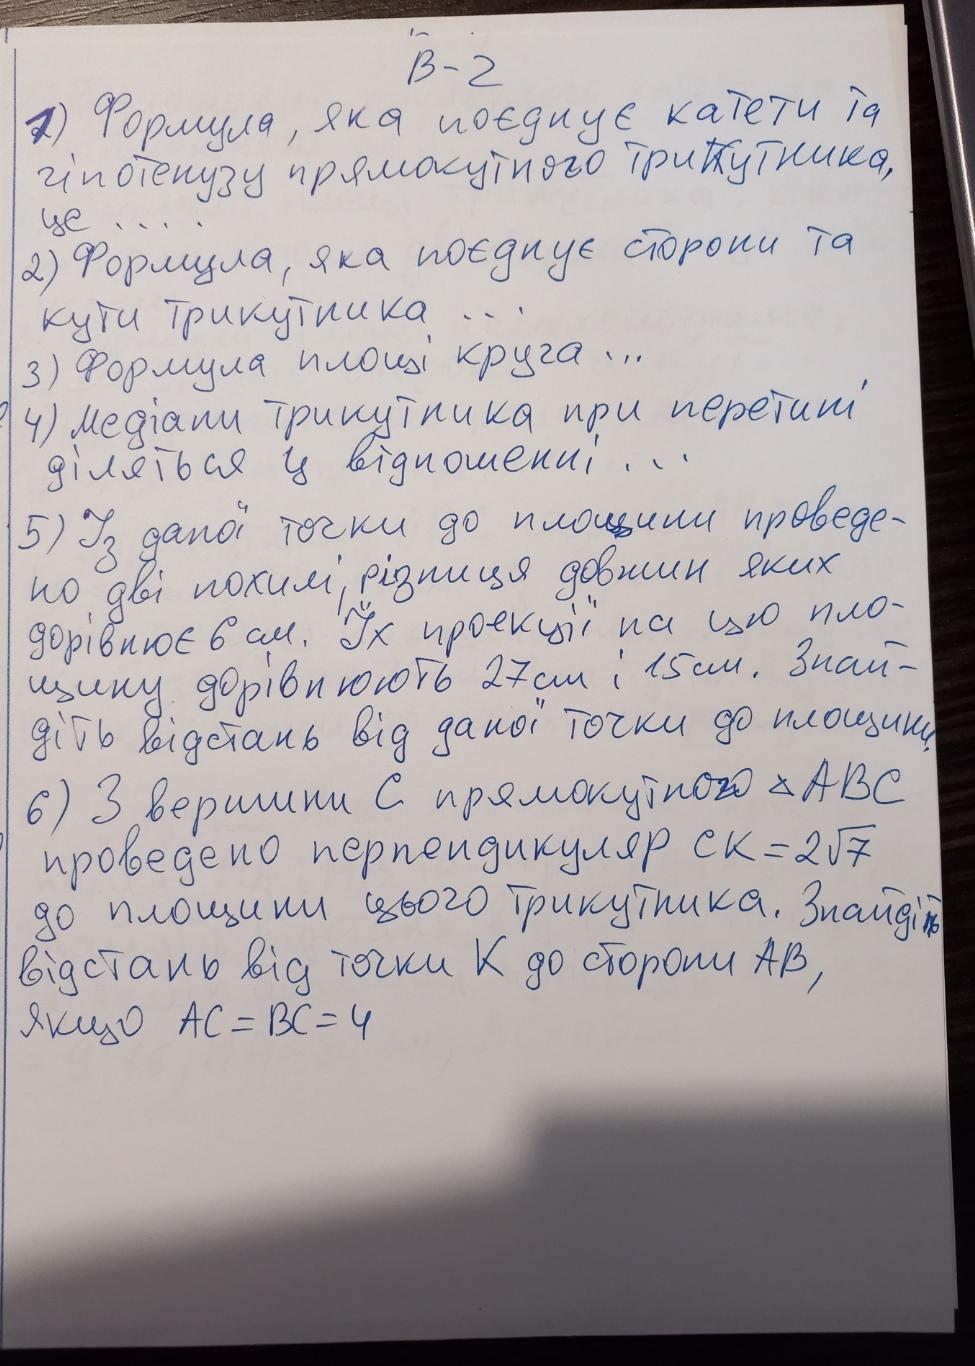 В-2
1) Формула, яка поєднує катети та
гіпотенузу прямокутного трикутника,
це ....
2) Формула, яка поєднує сторони та
кути трикутника ...
3) Формула площі круга ...
4) Медіани трикутника при перетині
діляться у відношенні ...
5) Із даної точки до площини проведе-
но дві похилі, різниця довжин яких
дорівнює 6 см. Їх проекції на цю пло-
щину дорівнюють 27см і 15см. Знай-
діть відстань від даної точки до площини.
6) З вершини С прямокутного △АВС
проведено перпендикуляр СК = 2√7
до площини цього трикутника. Знайдіть
відстань від точки К до сторони АВ,
якщо АС = ВС = 4